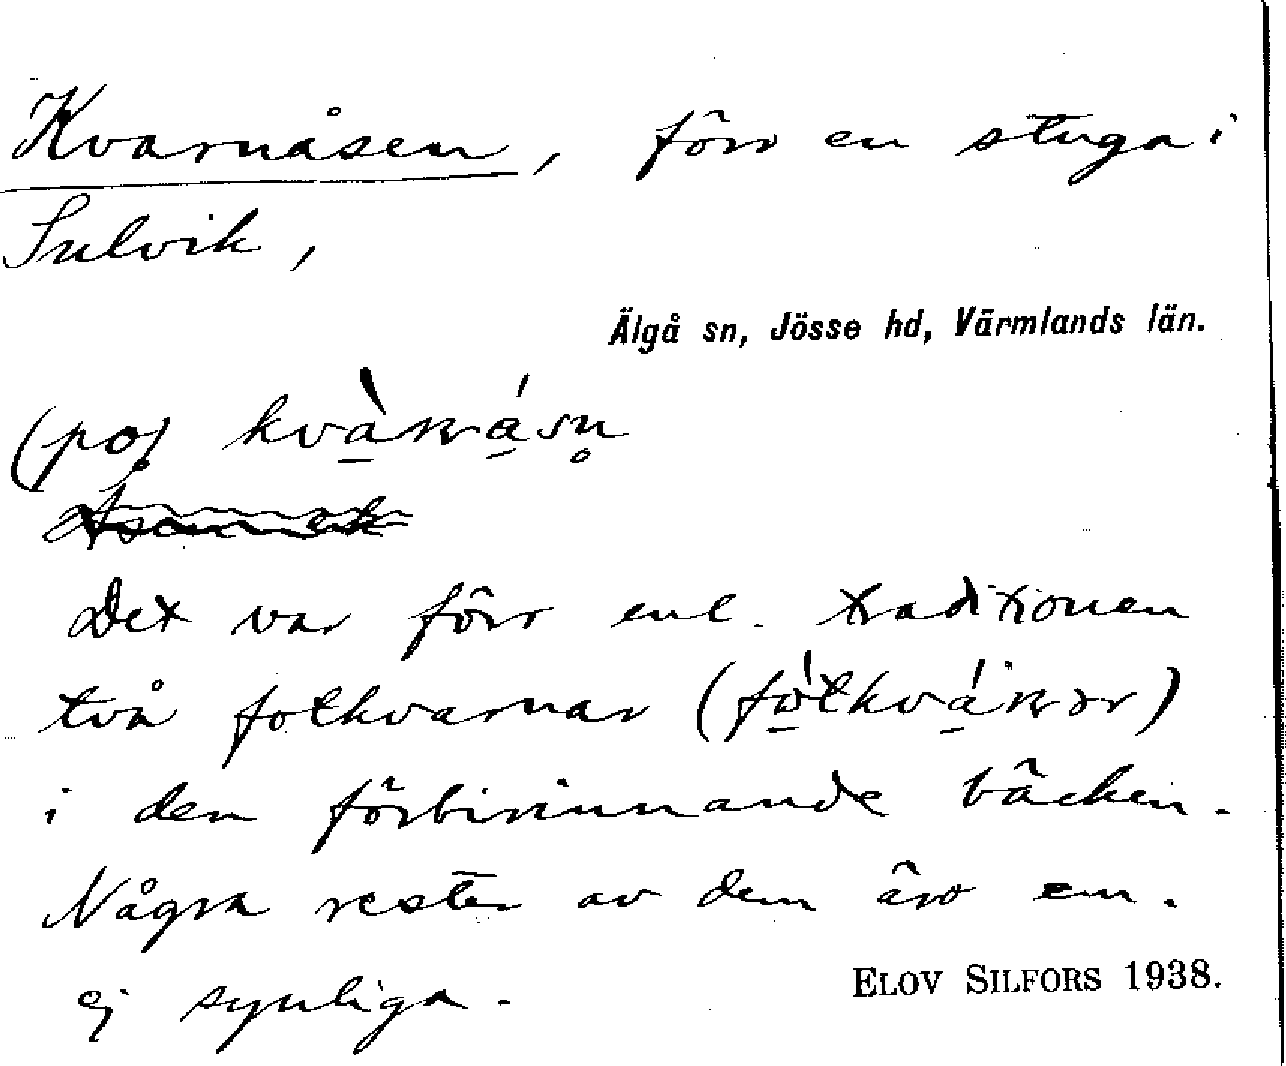 Kvarnåsen, förr en stuga i
Sulvik,
Älgå sn, Jösse hd, Värmlands län.
(po)
Det var förr enl. traditionen
två fotkvarnar
i den förbirinnande bäcken.
Några rester av dem äro nu
ej synliga.
ELOV SILFORS 1938.